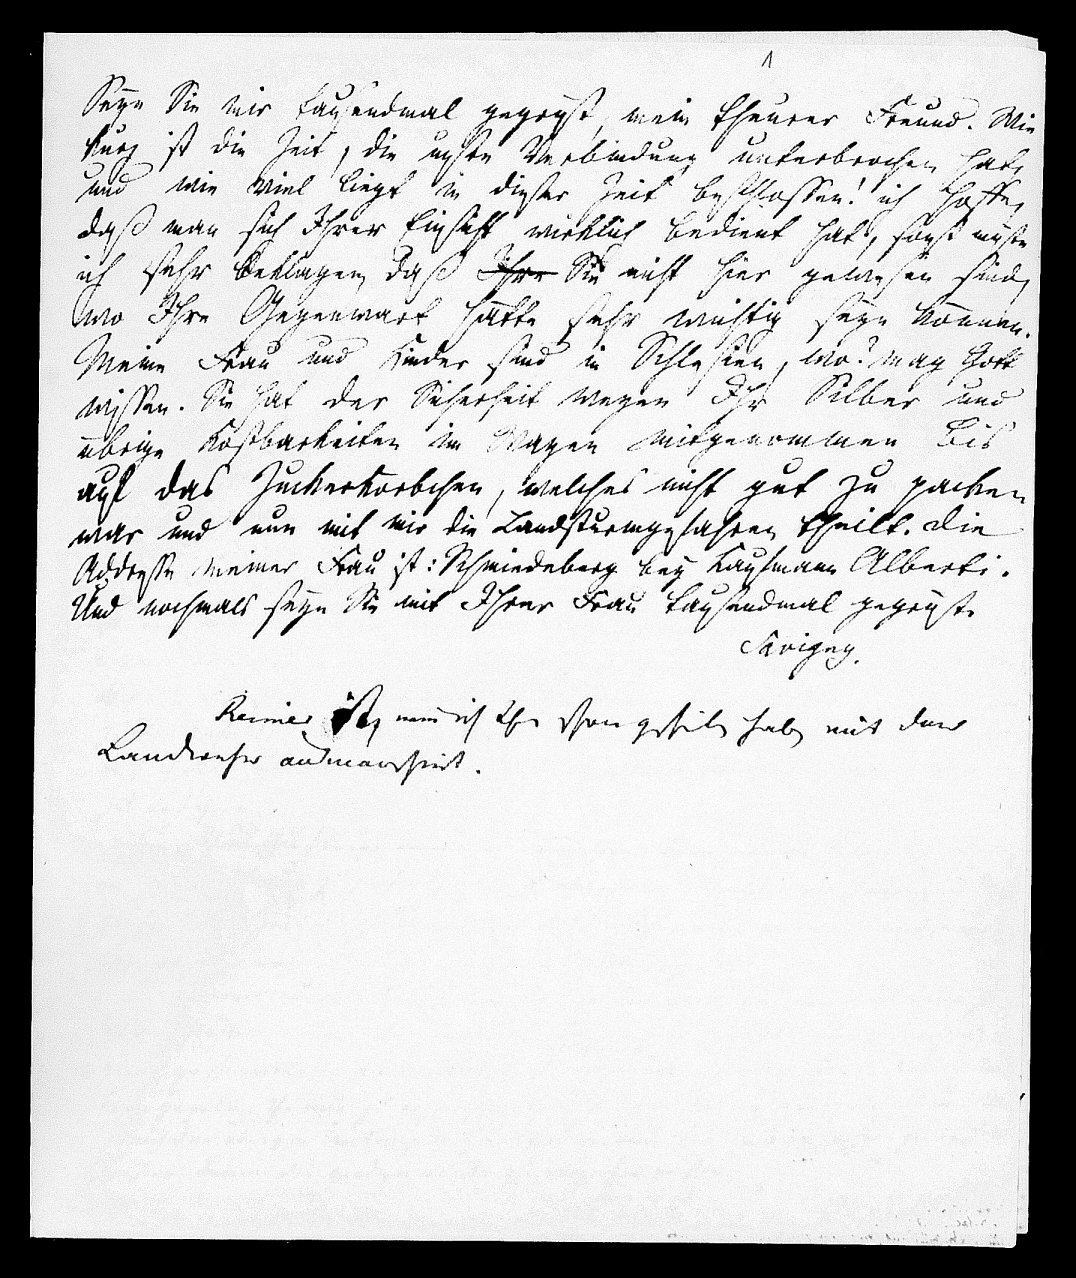 1
Seyn Sie mir tausendmal gegrüßt, mein theurer Freund. Wie
kurz ist die Zeit, die unsre Verbindung unterbrochen hat,
und wie viel liegt in dieser Zeit beschlossen! ich hoffe,
daß man sich Ihrer Einsicht wirklich bedient hat, sonst müßte
ich sehr beklagen, daß Ihre Sie nicht hier gewesen sind,
wo Ihre Gegenwart hätte sehr wichtig seyn können.
Meine Frau und Kinder sind in Schlesien, wo? mag Gott
wissen. Sie hat der Sicherheit wegen Ihr Silber und
übrige Kostbarkeiten im Wagen mitgenommen bis
auf das Zuckerkörbchen, welches nicht gut zu packen
war und nun mit mir die Landsturmgefahren theilt. Die
Addresse meiner Frau ist: Schmiedeberg bey Kaufmann Alberti.
Und nochmals seyn Sie mit Ihrer Frau tausendmal gegrüßt.
Savigny.
Reimer ist, wie ich schon geschrieben habe mit der
Landwehr ausmarschirt.